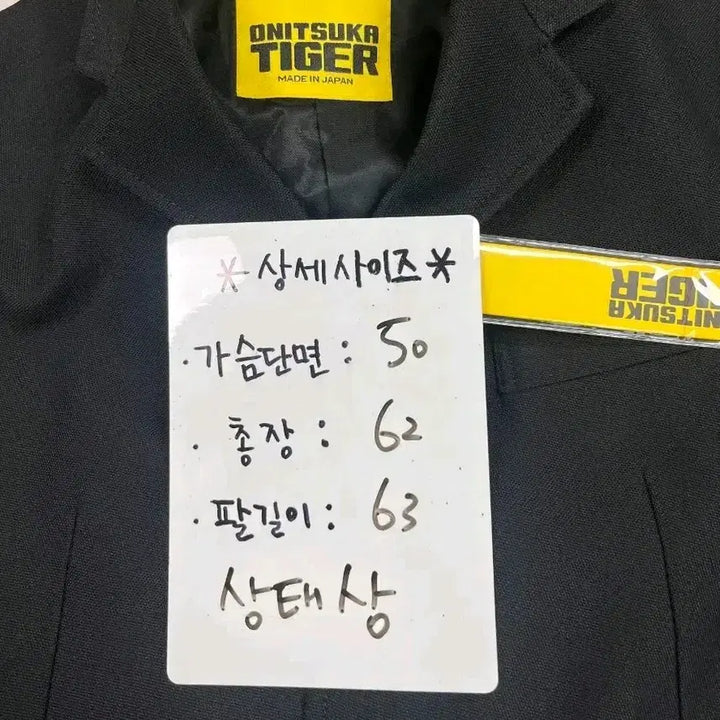 ONITSUKA
TIGER
MADE IN JAPAN
* 상세사이즈 *
· 가슴단면 : 50
· 총장 : 62
· 팔길이 : 63
상태 상
ONITSUKA
TIGER